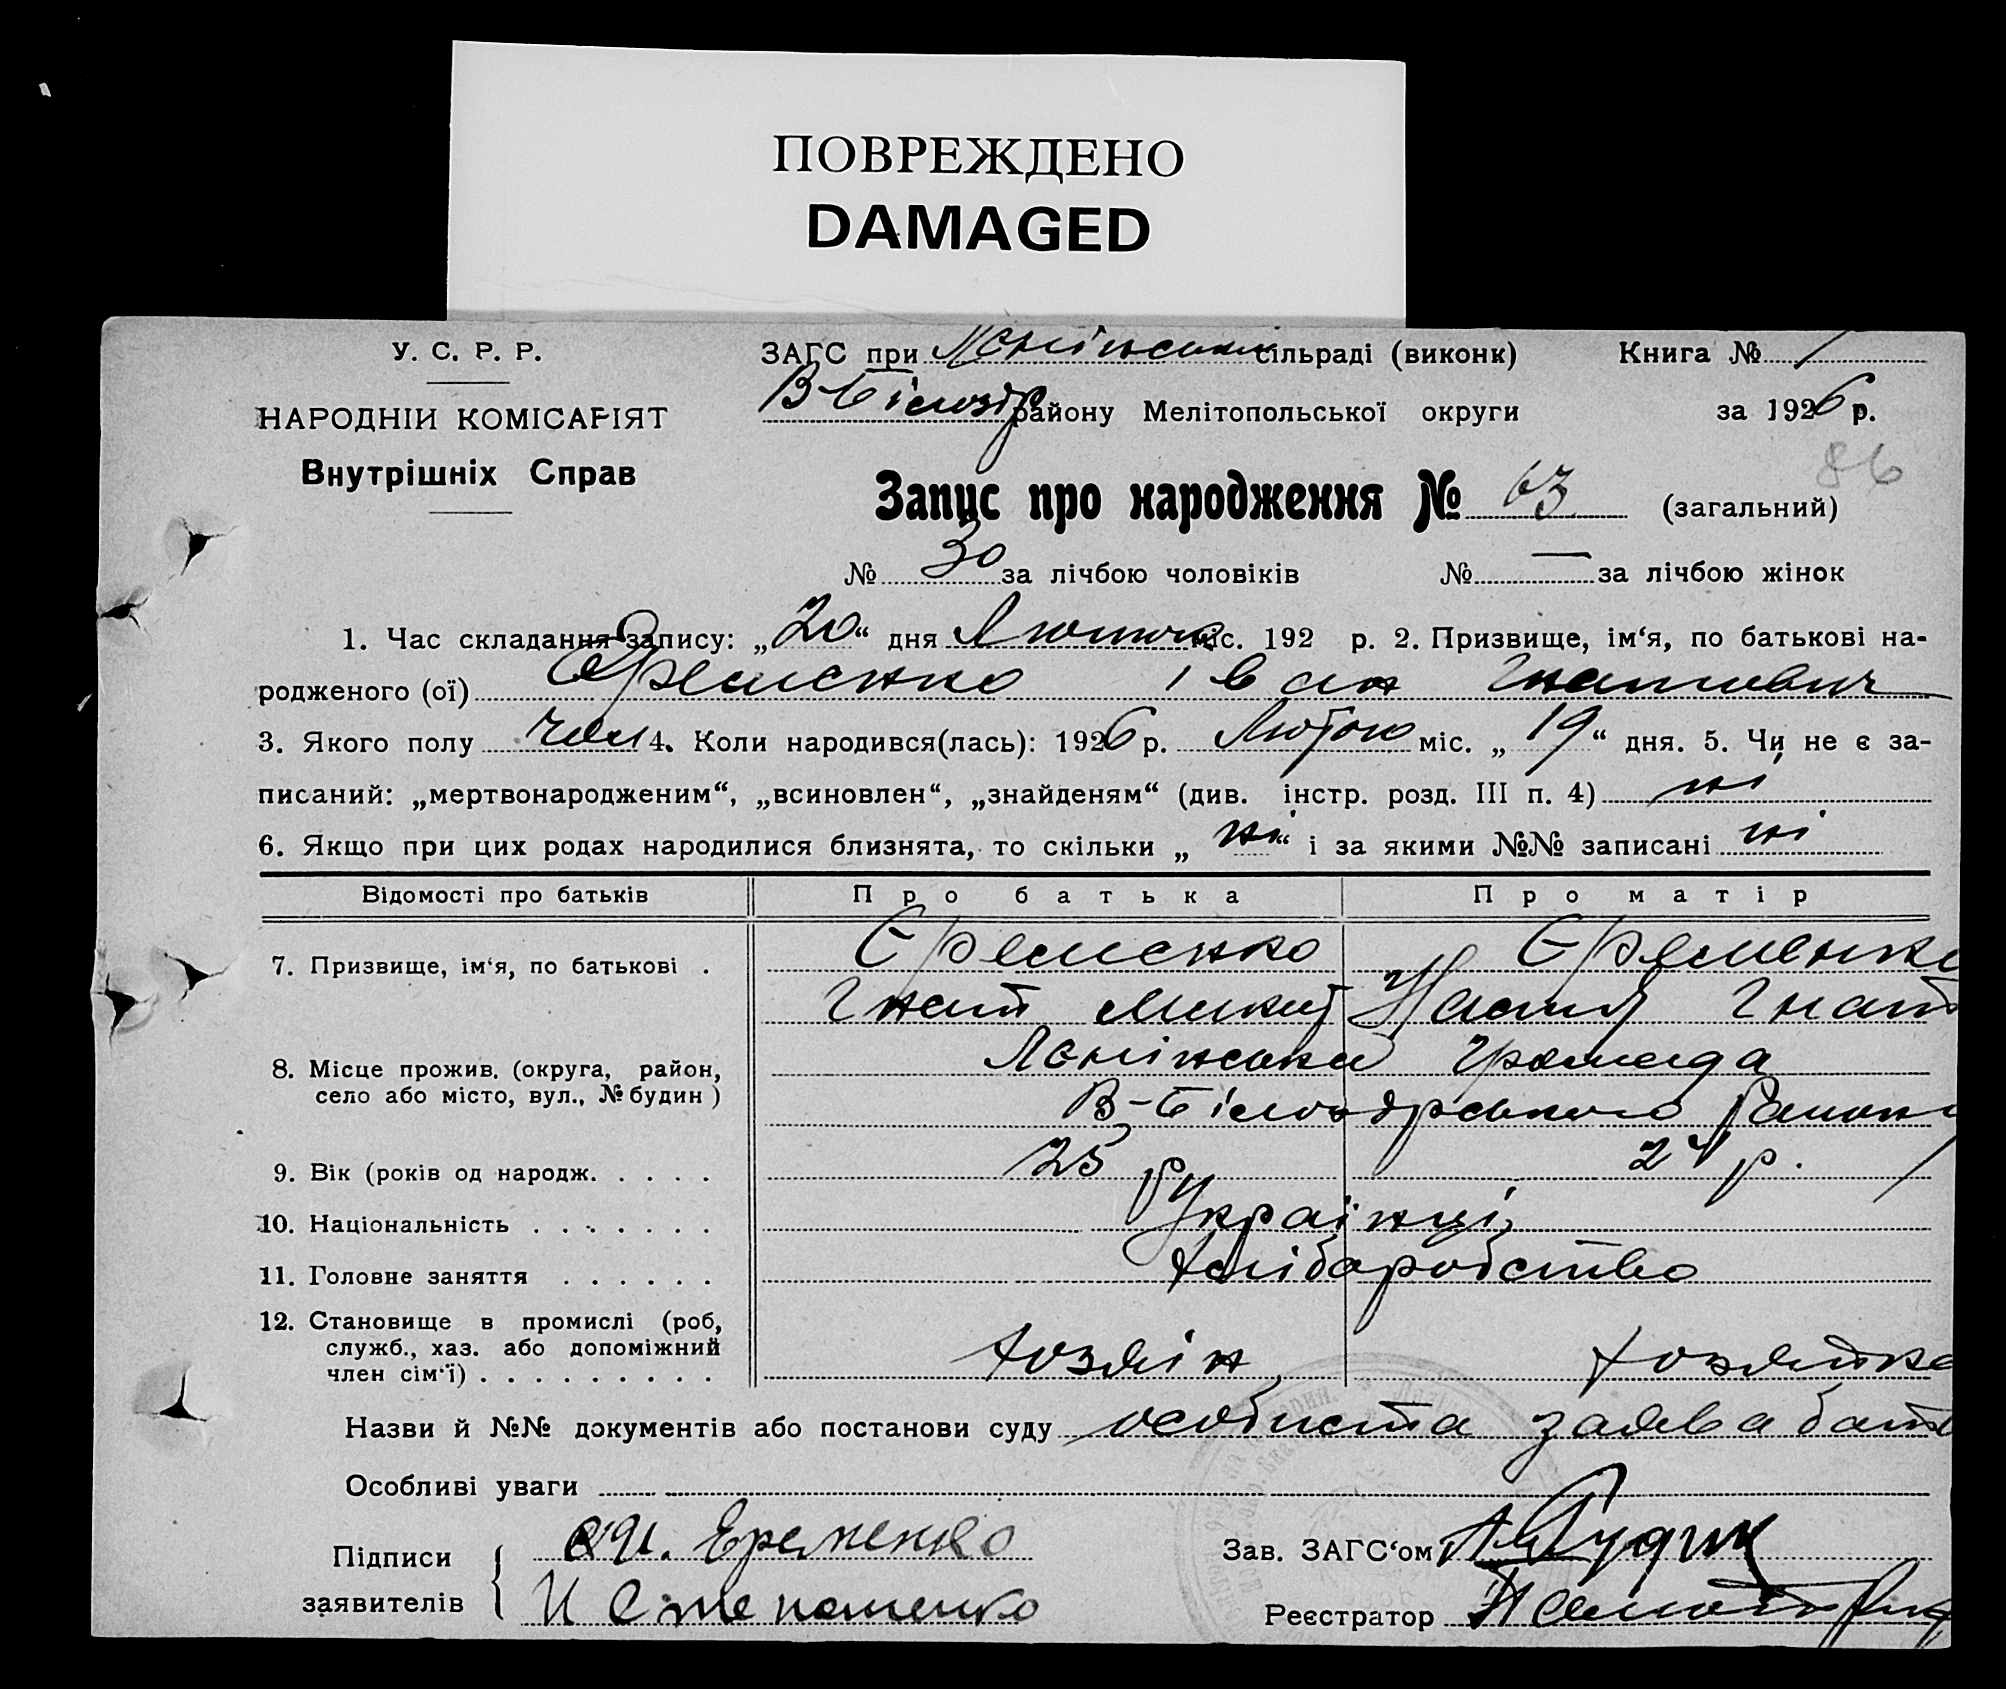 ПОВРЕЖДЕНО
DAMAGED
У. С. Р. Р. ЗАГС при сільраді (виконк) Книга № 1
В-Білозір району Мелітопольської округи за 1926 р.
НАРОДНІЙ КОМІСАРІЯТ
86
Внутрішніх Справ
Запис про народження № 63 (загальний)
№ 30 за лічбою чоловіків № — за лічбою жінок
1. Час складання запису: „20“ дня Лютого міс. 192 р. 2. Призвище, ім‘я, по батькові на-
родженого (ої) Єременко Іван Гнатович
3. Якого полу чол 4. Коли народився(лась): 1926 р. Лютого міс. „19“ дня. 5. Чи не є за-
писаний: „мертвонародженим“, „всиновлен“, „знайденям“ (див. інстр. розд. III п. 4) ні
6. Якщо при цих родах народилися близнята, то скільки „ні“ і за якими №№ записані ні
Відомості про батьків Про батька Про матір
7. Призвище, ім‘я, по батькові . Єременко Єременко
Гнат Микит Настя Гнат
8. Місце прожив. (округа, район, громада
село або місто, вул., № будин ) В-Білозірського Району
9. Вік (років од народж. . . . . 25 р 24 р.
10. Національність . . . . . . . Українці
11. Головне заняття . . . . . . Хліборобство
12. Становище в промислі (роб,
служб., хаз. або допоміжний
член сім‘ї) . . . . . . . . . хозяїн хозяйка
Назви й №№ документів або постанови суду особиста заява бать
Особливі уваги
Підписи Еременко Зав. ЗАГС‘ом
заявителів И Степаненко Реєстратор